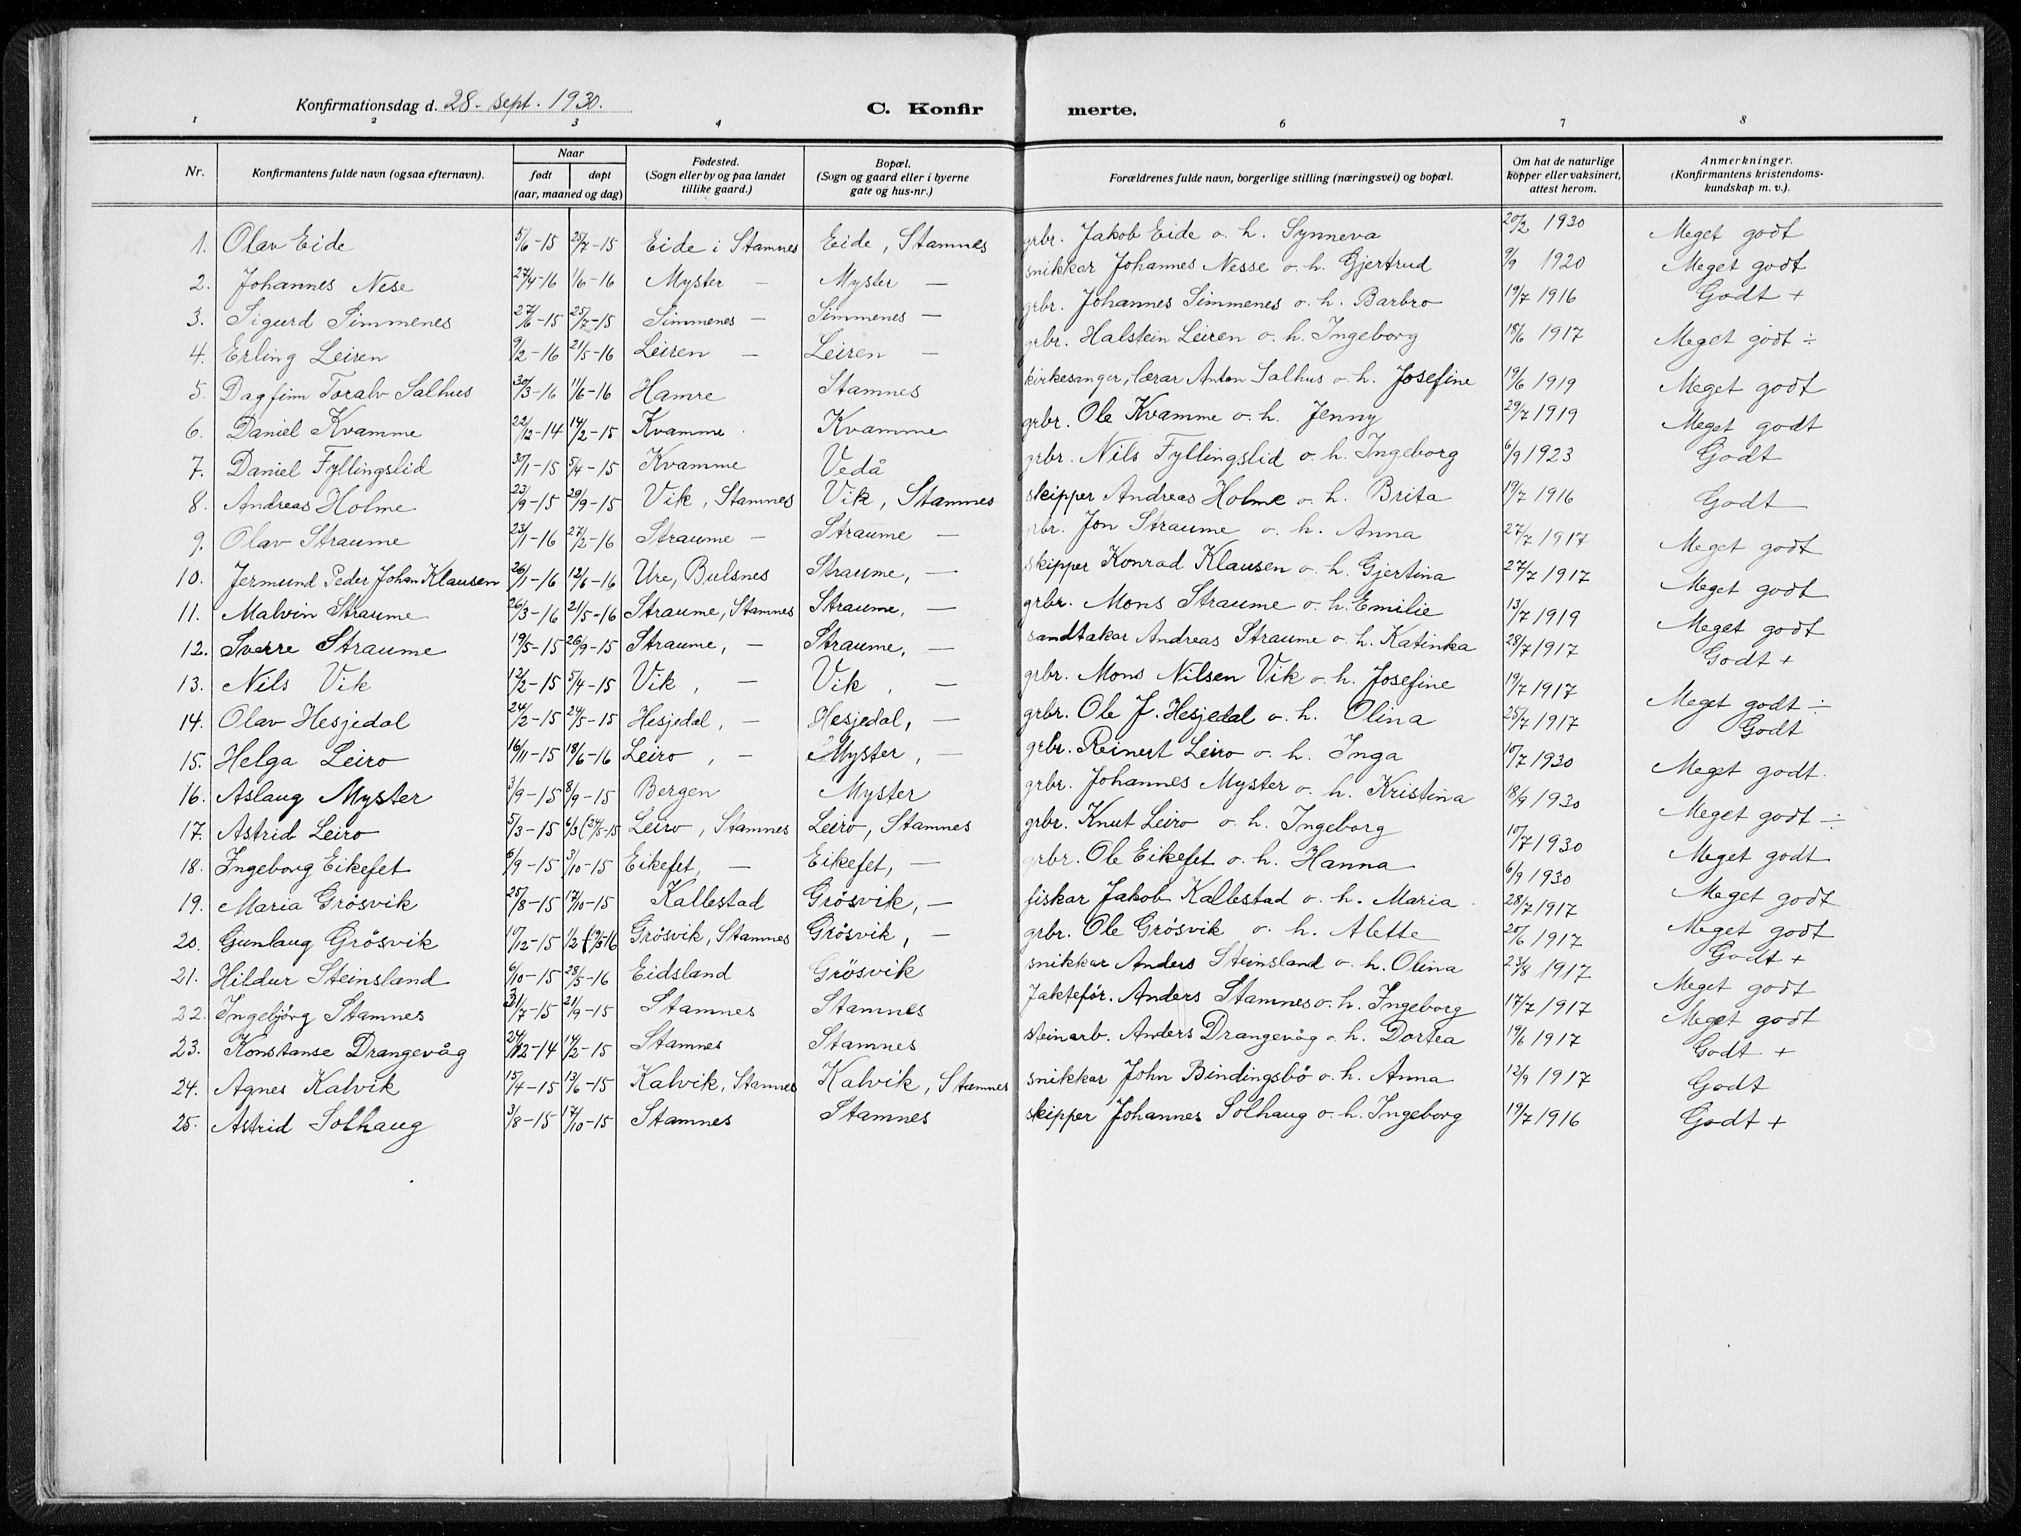 Konfirmationsdag d. 28. sept. 1930.
C. Konfir merte.
1 2 3 4 6 7 8
Nr. Konfirmantens fulde navn (ogsaa efternavn). Naar født døpt (aar, maaned og dag) Fødested. (Sogn eller by og paa landet tillike gaard.) Bopæl. (Sogn og gaard eller i byerne gate og hus-nr.) Forældrenes fulde navn, borgerlige stilling (næringsvei) og bopæl. Om hat de naturlige kopper eller vaksinert, attest herom. Anmerkninger. (Konfirmantens kristendoms-kundskap m. v.).
1. Olav Eide 5/6-15 25/7-15 Eide i Stamnes Eide, Stamnes grbr. Jakob Eide o. h. Synneva 20/2 1930 Meget godt
2. Johannes Nese 27/4-16 1/6-16 Myster — Myster — snikkar Johannes Nesse o. h. Gjertrud 9/9 1920 Meget godt
3. Sigurd Simmenes 27/6-15 25/7-15 Simmenes — Simmenes — grbr. Johannes Simmenes o. h. Barbro 19/7 1916 Godt +
4. Erling Leiren 9/2-16 21/5-16 Leiren — Leiren — grbr. Halstein Leiren o. h. Ingeborg 18/6 1917 Meget godt ÷
5. Dagfinn Toralv Salhus 30/3-16 11/6-16 Hamre Stamnes kirkesanger, lærar Anton Salhus o. h. Josefine 19/6 1919 Meget godt
6. Daniel Kvamme 22/12-14 14/2-15 Kvamme Kvamme grbr. Ole Kvamme o. h. Jenny 29/7 1919 Meget godt
7. Daniel Fyllingslid 30/1-15 5/4-15 Kvamme Vedå grbr. Nils Fyllingslid o. h. Ingeborg 6/9 1923 Godt
8. Andreas Holme 23/9-15 29/9-15 Vik, Stamnes Vik, Stamnes skipper Andreas Holme o. h. Brita 19/7 1916 Godt
9. Olav Straume 23/1-16 27/2-16 Straume — Straume — grbr. Jon Straume o. h. Anna 27/7 1917 Meget godt
10. Jermund Peder Johan Klausen 26/1-16 12/6-16 Ure, Bulsnes Straume, — skipper Konrad Klausen o. h. Gjertina 27/7 1917 Meget godt
11. Malvin Straume 26/3-16 21/5-16 Straume, Stamnes Straume, — grbr. Mons Straume o. h. Emilie 13/7 1919 Meget godt
12. Sverre Straume 19/5-15 26/9-15 Straume, — Straume, — sandtakar Andreas Straume o. h. Katinka 28/7 1917 Godt +
13. Nils Vik 12/2-15 5/4-15 Vik, — Vik, — grbr. Mons Nilsen Vik o. h. Josefine 19/7 1917 Meget godt ÷
14. Olav Hesjedal 24/2-15 24/5-15 Hesjedal, — Hesjedal, — grbr. Ole J. Hesjedal o. h. Olina 25/7 1917 Godt
15. Helga Leiro 16/11-15 18/6-16 Leiro, — Myster, — grbr. Reinert Leiro o. h. Inga 10/7 1930 Meget godt.
16. Aslaug Myster 3/9-15 8/9-15 Bergen Myster grbr. Johannes Myster o. h. Kristina 18/9 1930 Meget godt ÷
17. Astrid Leiro 5/3-15 6/3 (24/5-15 Leiro, Stamnes Leiro, Stamnes grbr. Knut Leiro o. h. Ingeborg 10/7 1930 Meget godt
18. Ingeborg Eikefet 6/9-15 3/10-15 Eikefet, — Eikefet, — grbr. Ole Eikefet o. h. Hanna 6/9 1930 Meget godt
19. Maria Grösvik 25/8-15 17/10-15 Kallestad Grösvik, — fiskar Jakob Kallestad o. h. Maria 28/7 1917 Meget godt
20. Gunlaug Grösvik 17/12-15 Grösvik, Stamnes Grösvik, — grbr. Ole Grösvik o. h. Alette 20/6 1917 Godt +
21. Hildur Steinsland 6/10-15 28/5-16 Eidsland Grösvik snikkar Anders Steinsland o. h. Olina 23/8 1917 Meget godt
22. Ingebjörg Stamnes 31/7-15 21/9-15 Stamnes Stamnes Jaktefør. Anders Stamnes o. h. Ingeborg 17/7 1917 Meget godt
23. Konstanse Drangevåg 24/12-14 14/2-15 Stamnes Stamnes steinarb. Anders Drangevåg o. h. Dortea 19/6 1917 Godt +
24. Agnes Kalvik 15/4-15 13/6-15 Kalvik, Stamnes Kalvik, Stamnes snikkar John Bindingsbö o. h. Anna 12/9 1917 Godt
25. Astrid Solhaug 3/8-15 17/10-15 Stamnes Stamnes skipper Johannes Solhaug o. h. Ingeborg 19/7 1916 Godt +